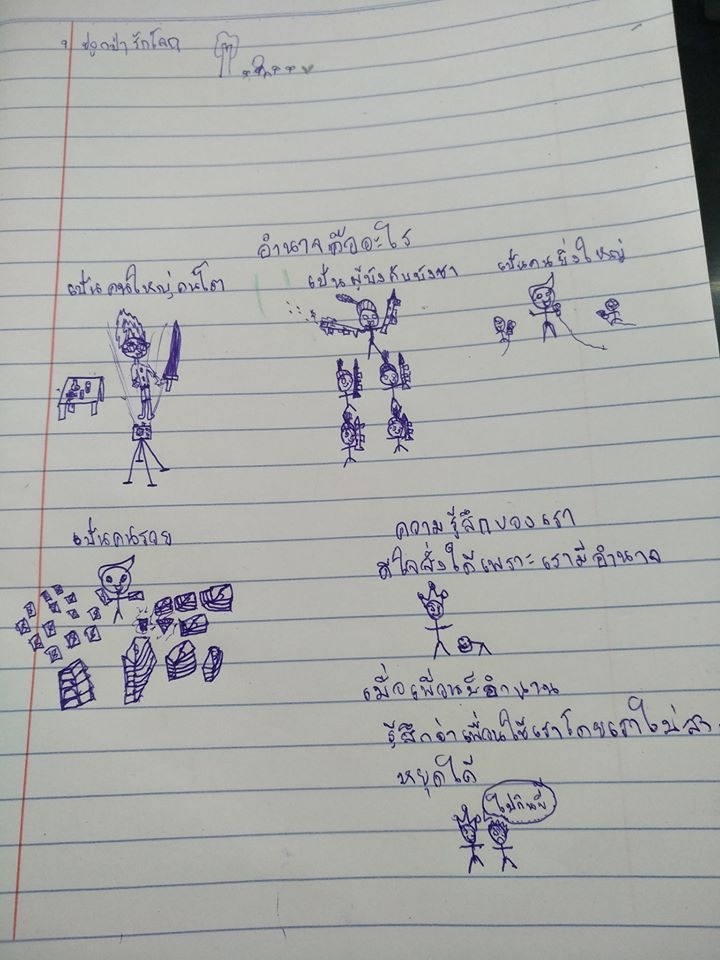 ปลูกป่า รักโลก
อำนาจคืออะไร
เป็นคนใหญ่คนโต
เป็นผู้บังคับบังชา
เป็นคนยิ่งใหญ่
เป็นคนรวย
ความรู้สึกของเรา
สั่งได้เพราะเรามีอำนาจ
เมื่อเพื่อนมีอำนาน
รู้สึกว่าเพื่อนใช้เราโดยเราไม่สา
หยุดได้